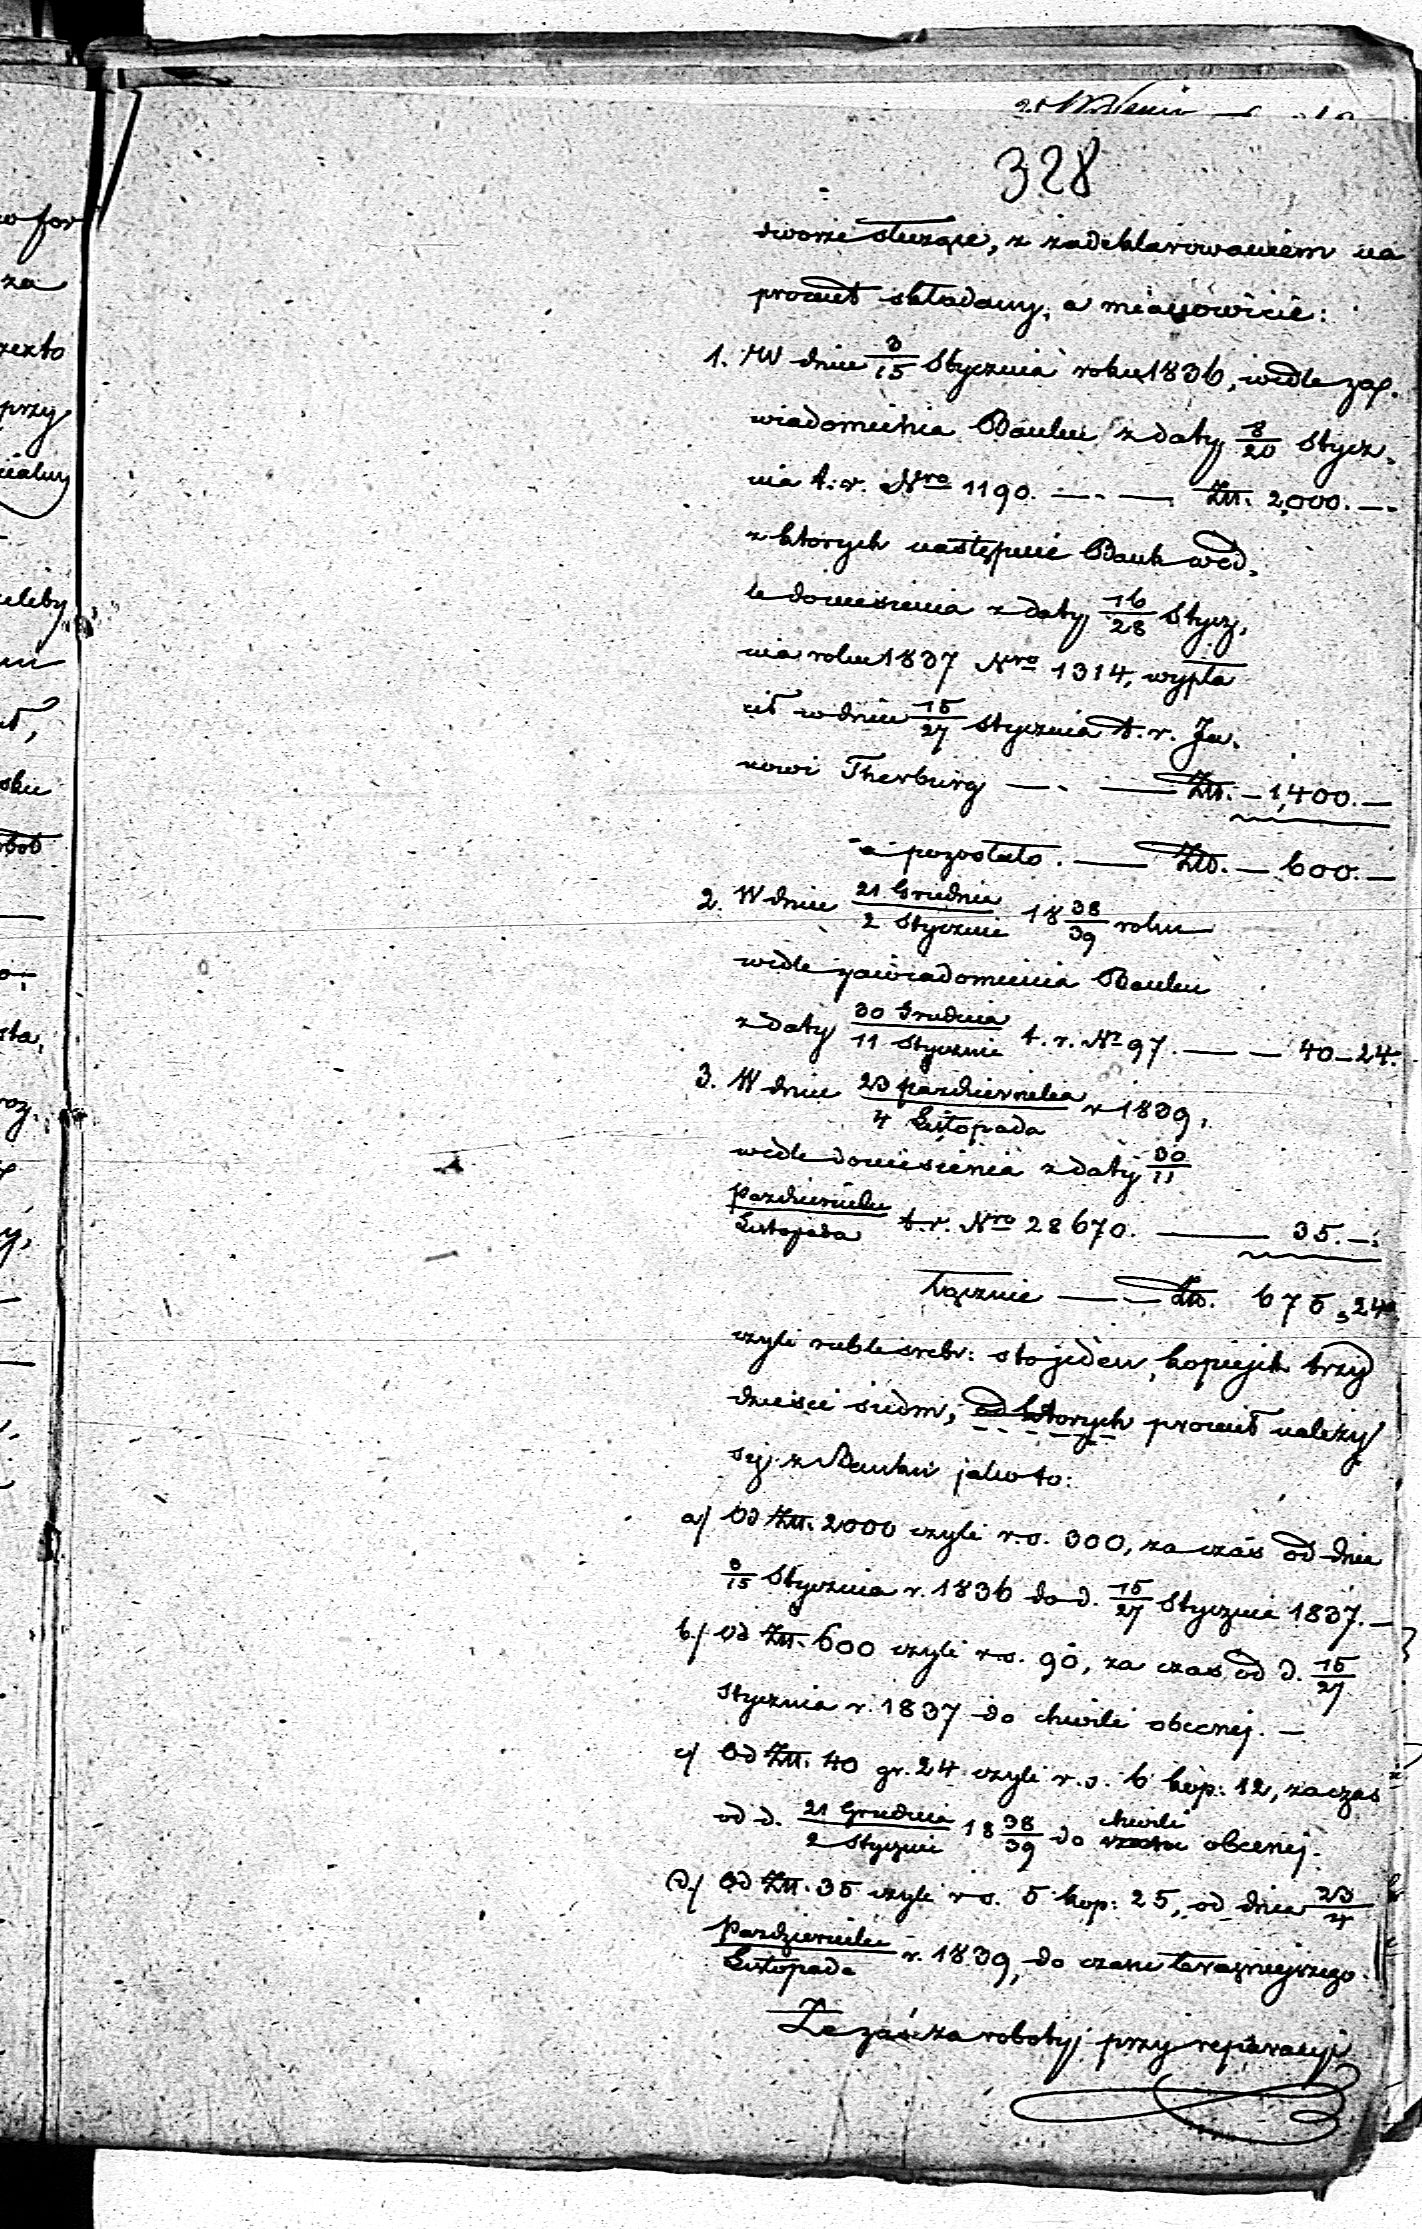 328
dworze służące, z zadeklarowaniem na
procent składany, a mianowicie:
1. W dniu 3/15 Stycznia roku 1836, wedle za,
wiadomienia Banku z daty 8/20 Stycz,
nia t. r. Nro 1190. — Złt. 2,000. —
z których następnie Bank wed,
le doniesienia z daty 16/28 Stycz,
nia roku 1837 Nro 1314, wypła
cił w dniu 15/27 Stycznia t. r. Ja,
nowi Therburg — Złt. — 1,400. —
a pozostało. — Złt. — 600. —
2. W dniu 21 Grudnia/2 Stycznia 18 38/39 roku
wedle zawiadomienia Banku
z daty 30 Grudnia/11 Stycznia t. r. Nr 97. — — 40—24.
3. W dniu 23 października/4 Listopada r 1839,
wedle doniesienia z daty 30/11
Października/Listopada t. r. Nro 28670. — 35. —
łącznie — Złt. 675, 24
czyli ruble srebr: sto jeden, kopiejek trzy
dzieści siedm, od których procent należy
się z Banku jako to:
a/ Od Złt. 2000 czyli r. s. 300, za czas od dnia
3/15 Stycznia r. 1836 do d. 15/27 Stycznia 1837. —
b/ Od Złt. 600 czyli r. s. 90, za czas od d. 15/27
Stycznia r. 1837 do chwili obecnej. —
c/ Od Złt. 40 gr. 24 czyli r. s. 6 kop: 12, za czas
od d. 21 Grudnia/2 Stycznia 18 38/39 do chwili obecnej.
d/ Od Złt. 35 czyli r s. 5 kop: 25, od dnia 23/4
Października/Listopada r. 1839, do czasu teraźniejszego.
Że zaś za roboty przy reparacyi